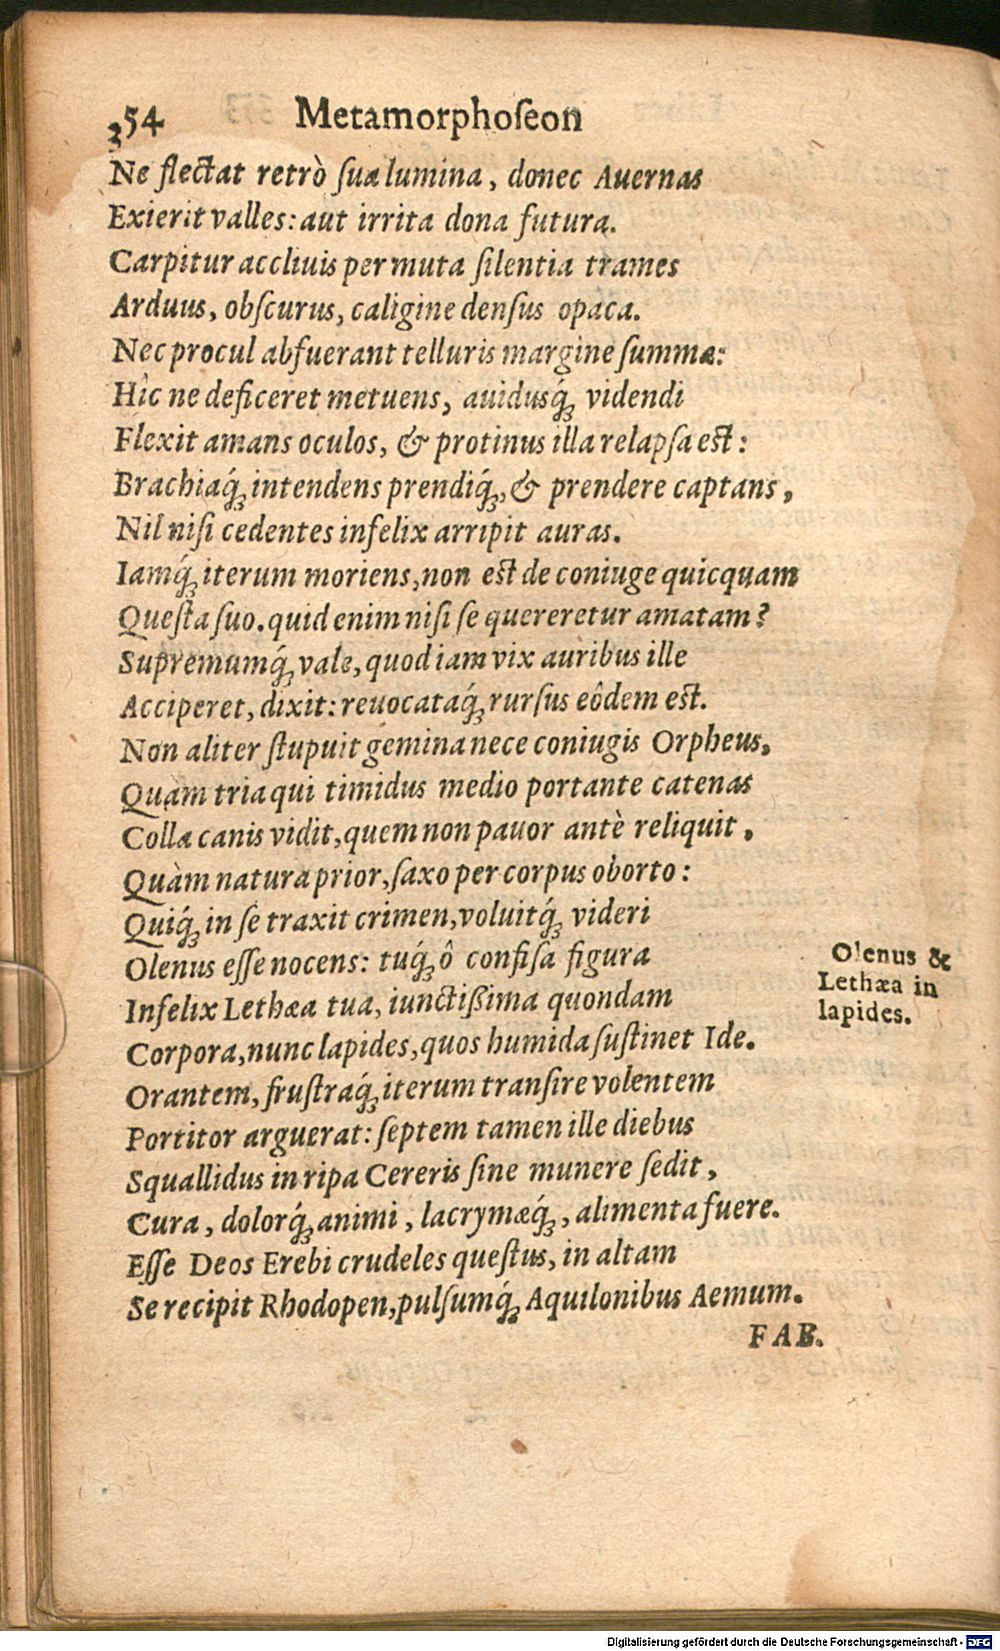 354 Metamorphoſeon
Ne flectat retrò ſua lumina, donec Auernas
Exierit valles: aut irrita dona futura.
Carpitur accliuis per muta ſilentia trames
Arduus, obſcurus, caligine denſus opaca.
Nec procul abfuerant telluris margine ſummæ:
Hîc ne deficeret metuens, auidusq́ꝫ videndi
Flexit amans oculos, & protinus illa relapſa est:
Brachiaq́ꝫ intendens prendiq́ꝫ, & prendere captans,
Nil niſi cedentes infelix arripit auras.
Iamq́ꝫ iterum moriens, non est de coniuge quicquam
Queſta ſuo. quid enim niſi ſe quereretur amatam?
Supremumq́ꝫ vale, quod iam vix auribus ille
Acciperet, dixit: reuocataq́ꝫ rurſus eôdem est.
Non aliter ſtupuit gemina nece coniugis Orpheus,
Quàm tria qui timidus medio portante catenas
Colla canis vidit, quem non pauor antè reliquit,
Quàm natura prior, ſaxo per corpus oborto:
Quiq́ꝫ in ſe traxit crimen, voluitq́ꝫ videri
Olenus eſſe nocens: tuq́ꝫ ô confiſa figura
Infelix Lethæa tua, iunctißima quondam
Corpora, nunc lapides, quos humida ſuſtinet Ide.
Orantem, fruſtraq́ꝫ iterum tranſire volentem
Portitor arguerat: ſeptem tamen ille diebus
Squallidus in ripa Cereris ſine munere ſedit,
Cura, dolorq́ꝫ animi, lacrymæq́ꝫ, alimenta fuere.
Eſſe Deos Erebi crudeles queſtus, in altam
Se recipit Rhodopen, pulſumq́ꝫ Aquilonibus Aemum.
FAB.
Olenus &
Lethæa in
lapides.
Digitalisierung gefördert durch die Deutsche Forschungsgemeinschaft - DFG